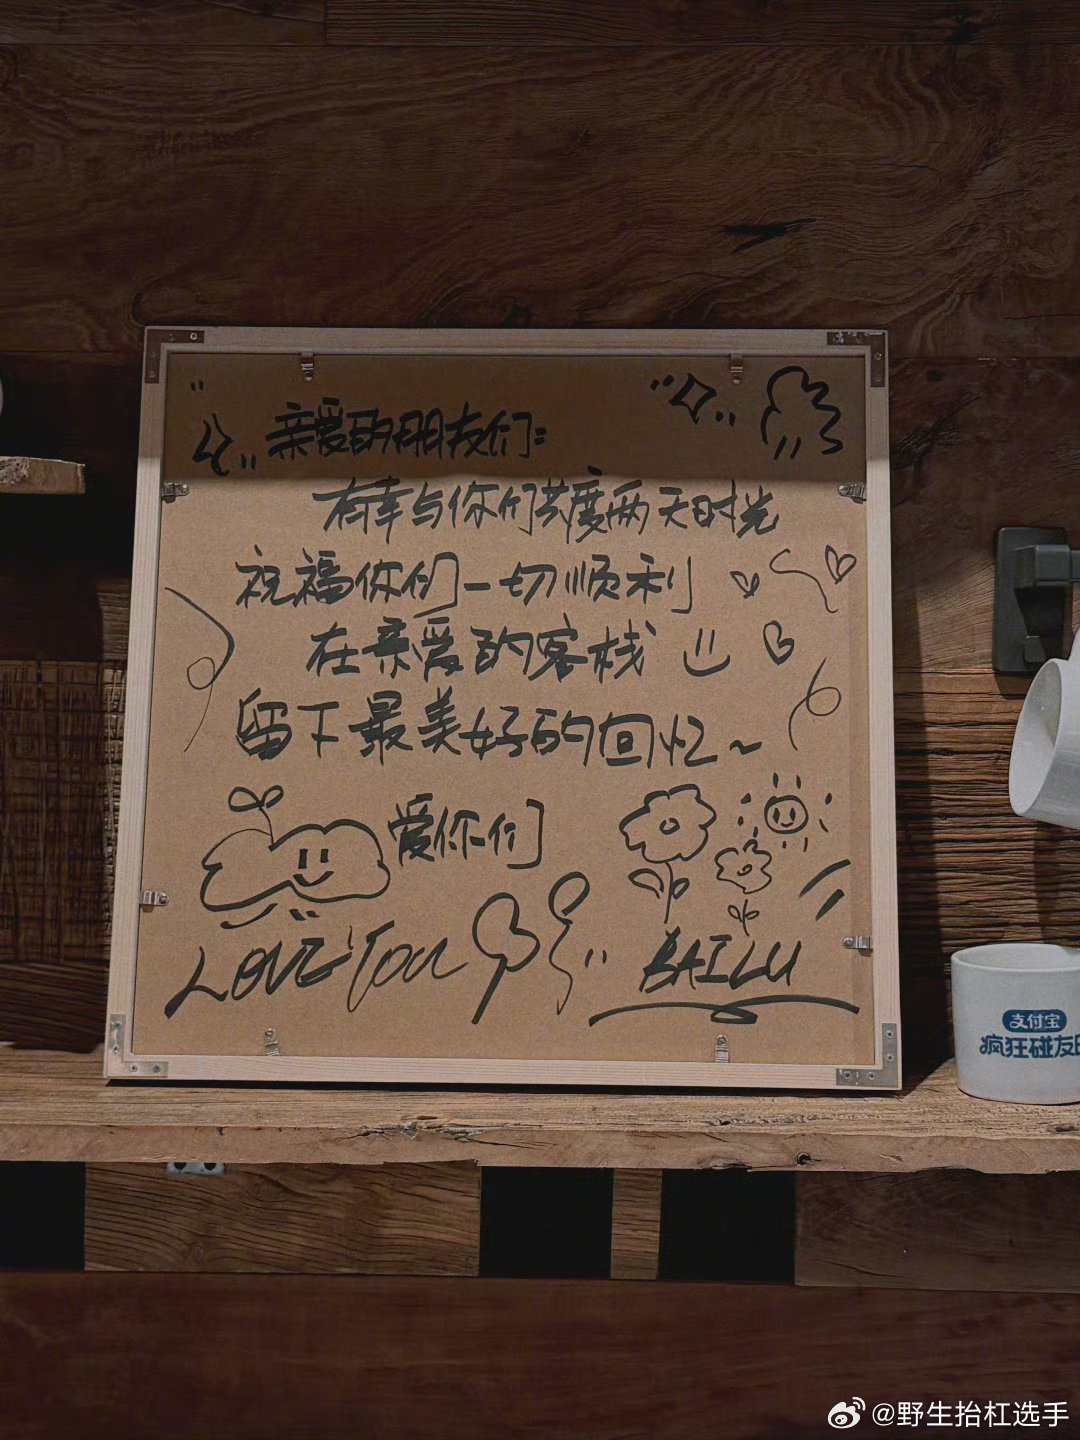 亲爱的朋友们:
有幸与你们共度两天时光
祝福你们一切顺利
在亲爱的客栈
留下最美好的回忆~
爱你们
LOVE You
BAILU
支付宝
疯狂碰友
@野生抬杠选手